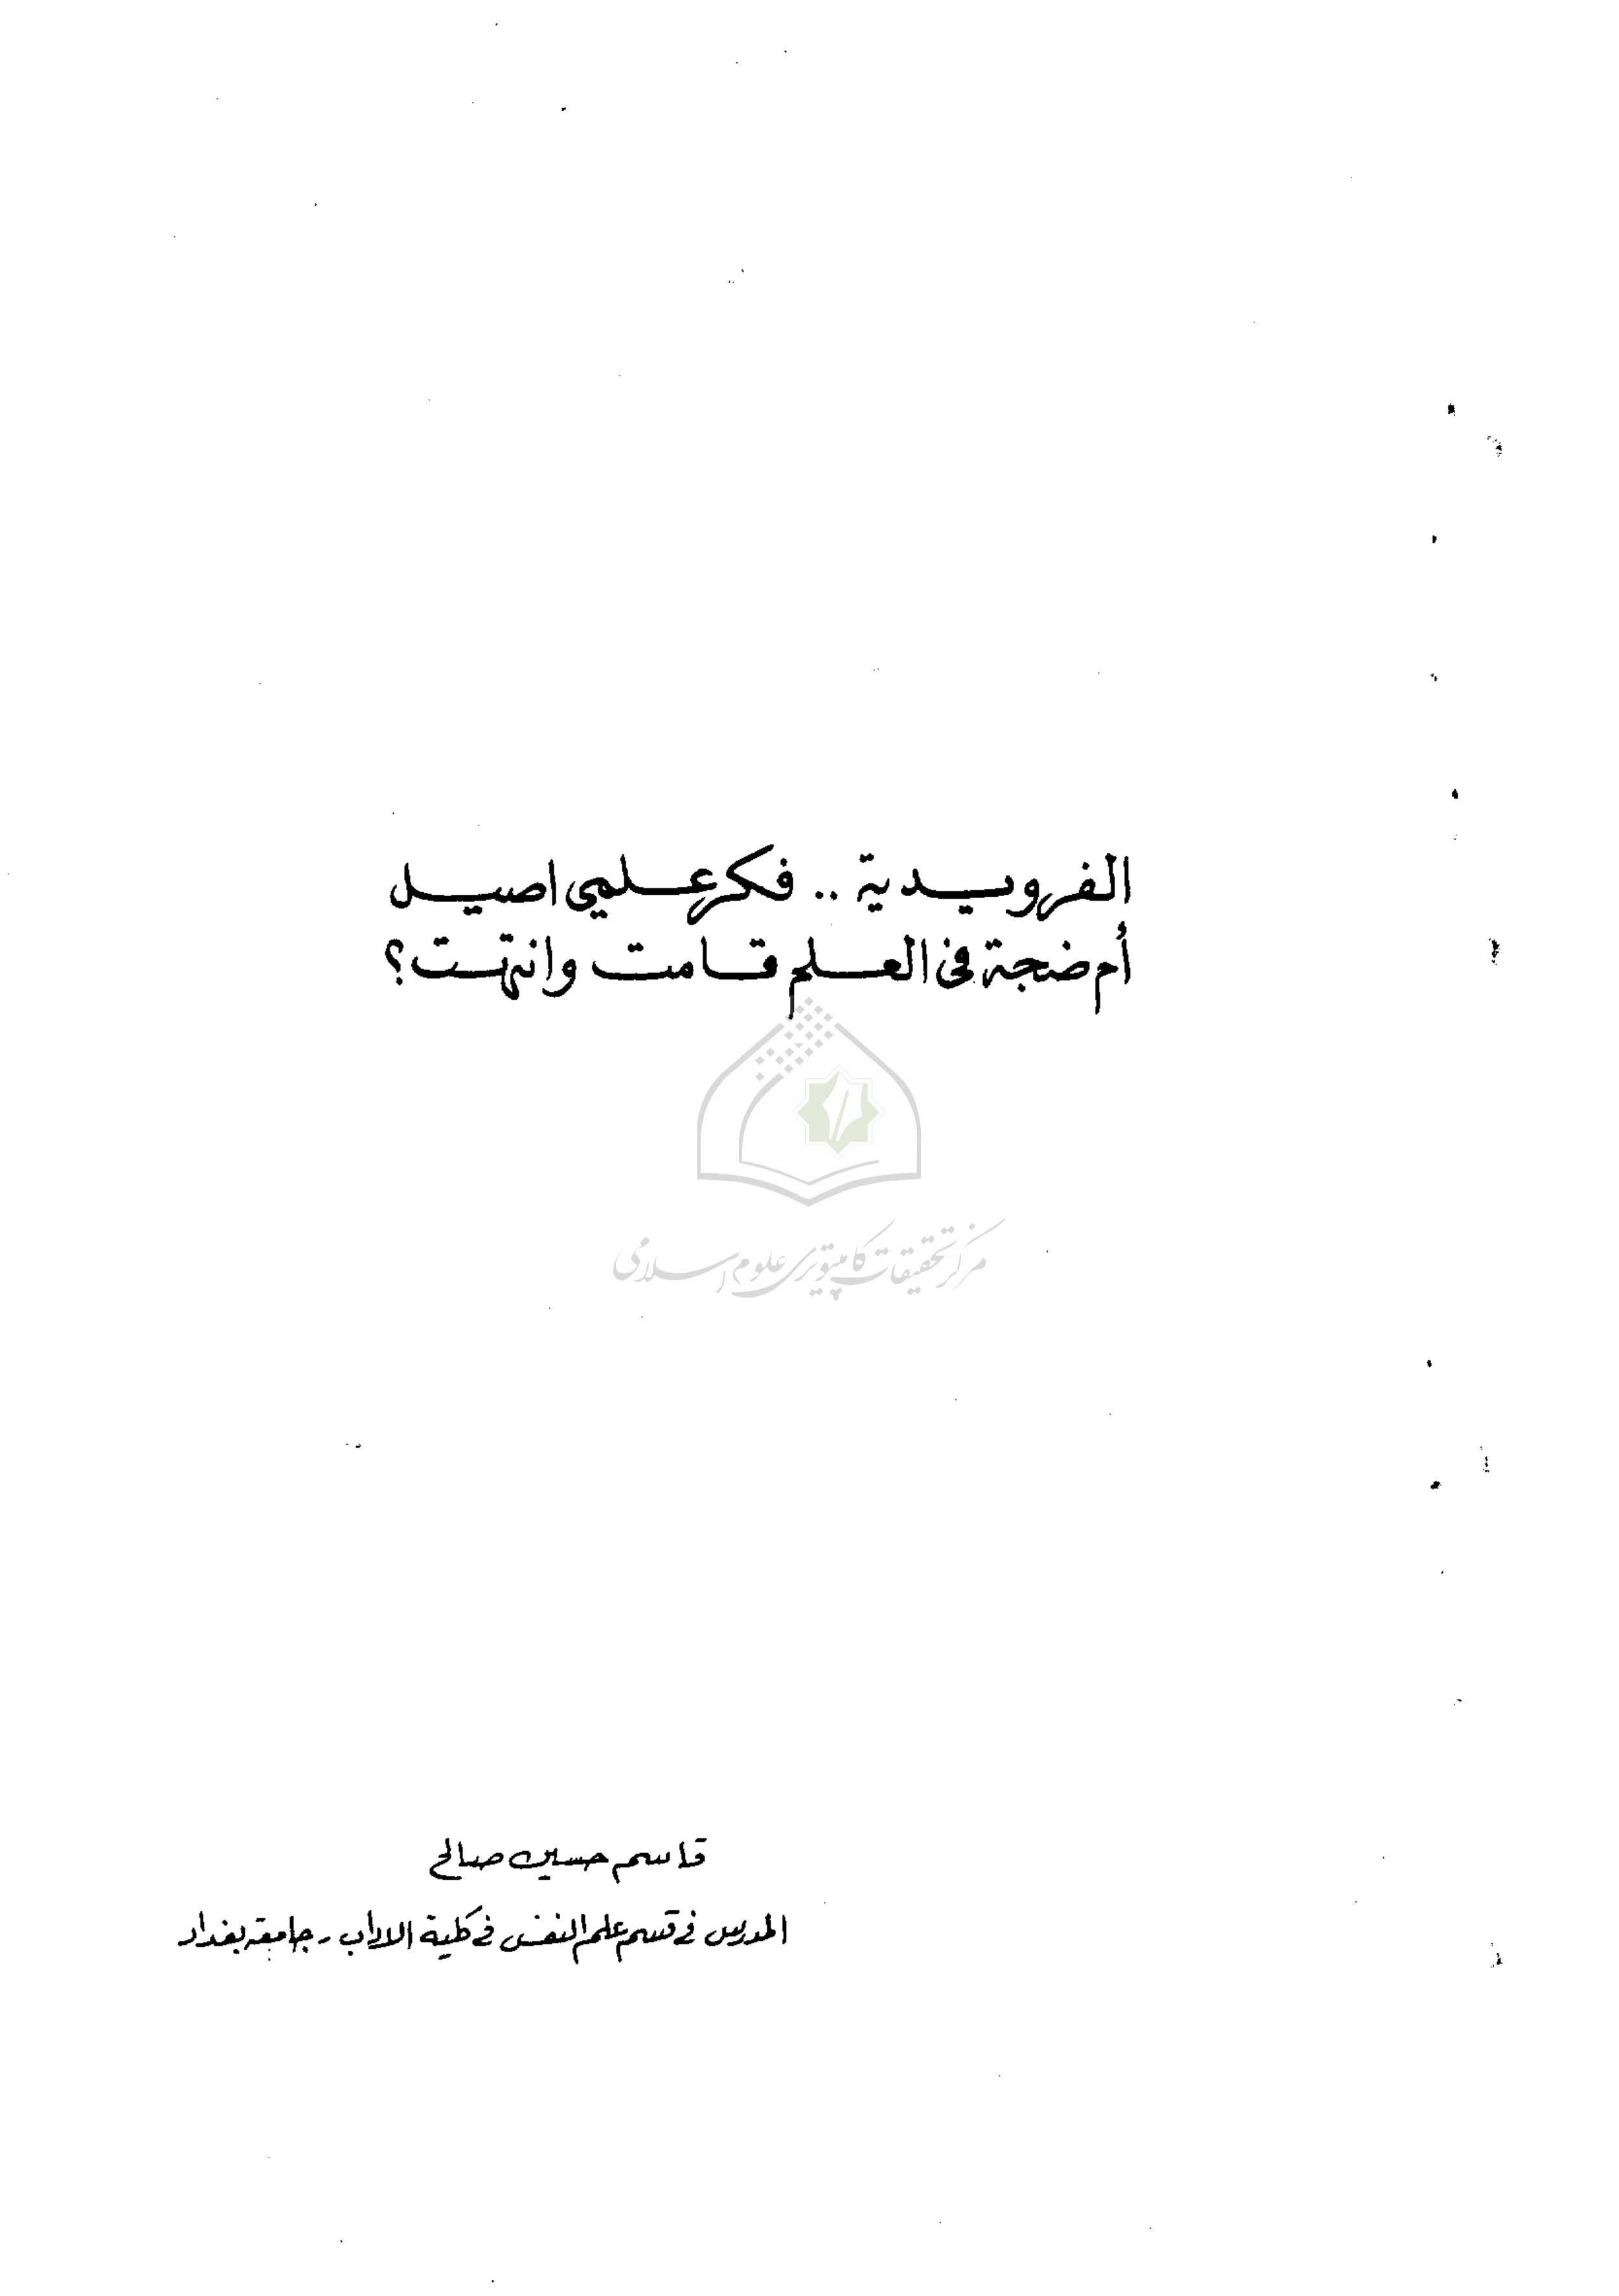 الفرويدية .. فكر علمي اصيل
أم ضجة في العلم قامت وانتهت؟
مركز تحقيقات كامپيوتري علوم اسلامى
قاسم حسين صالح
المدرس في قسم علم النفس في كلية الاداب - جامعة بغداد